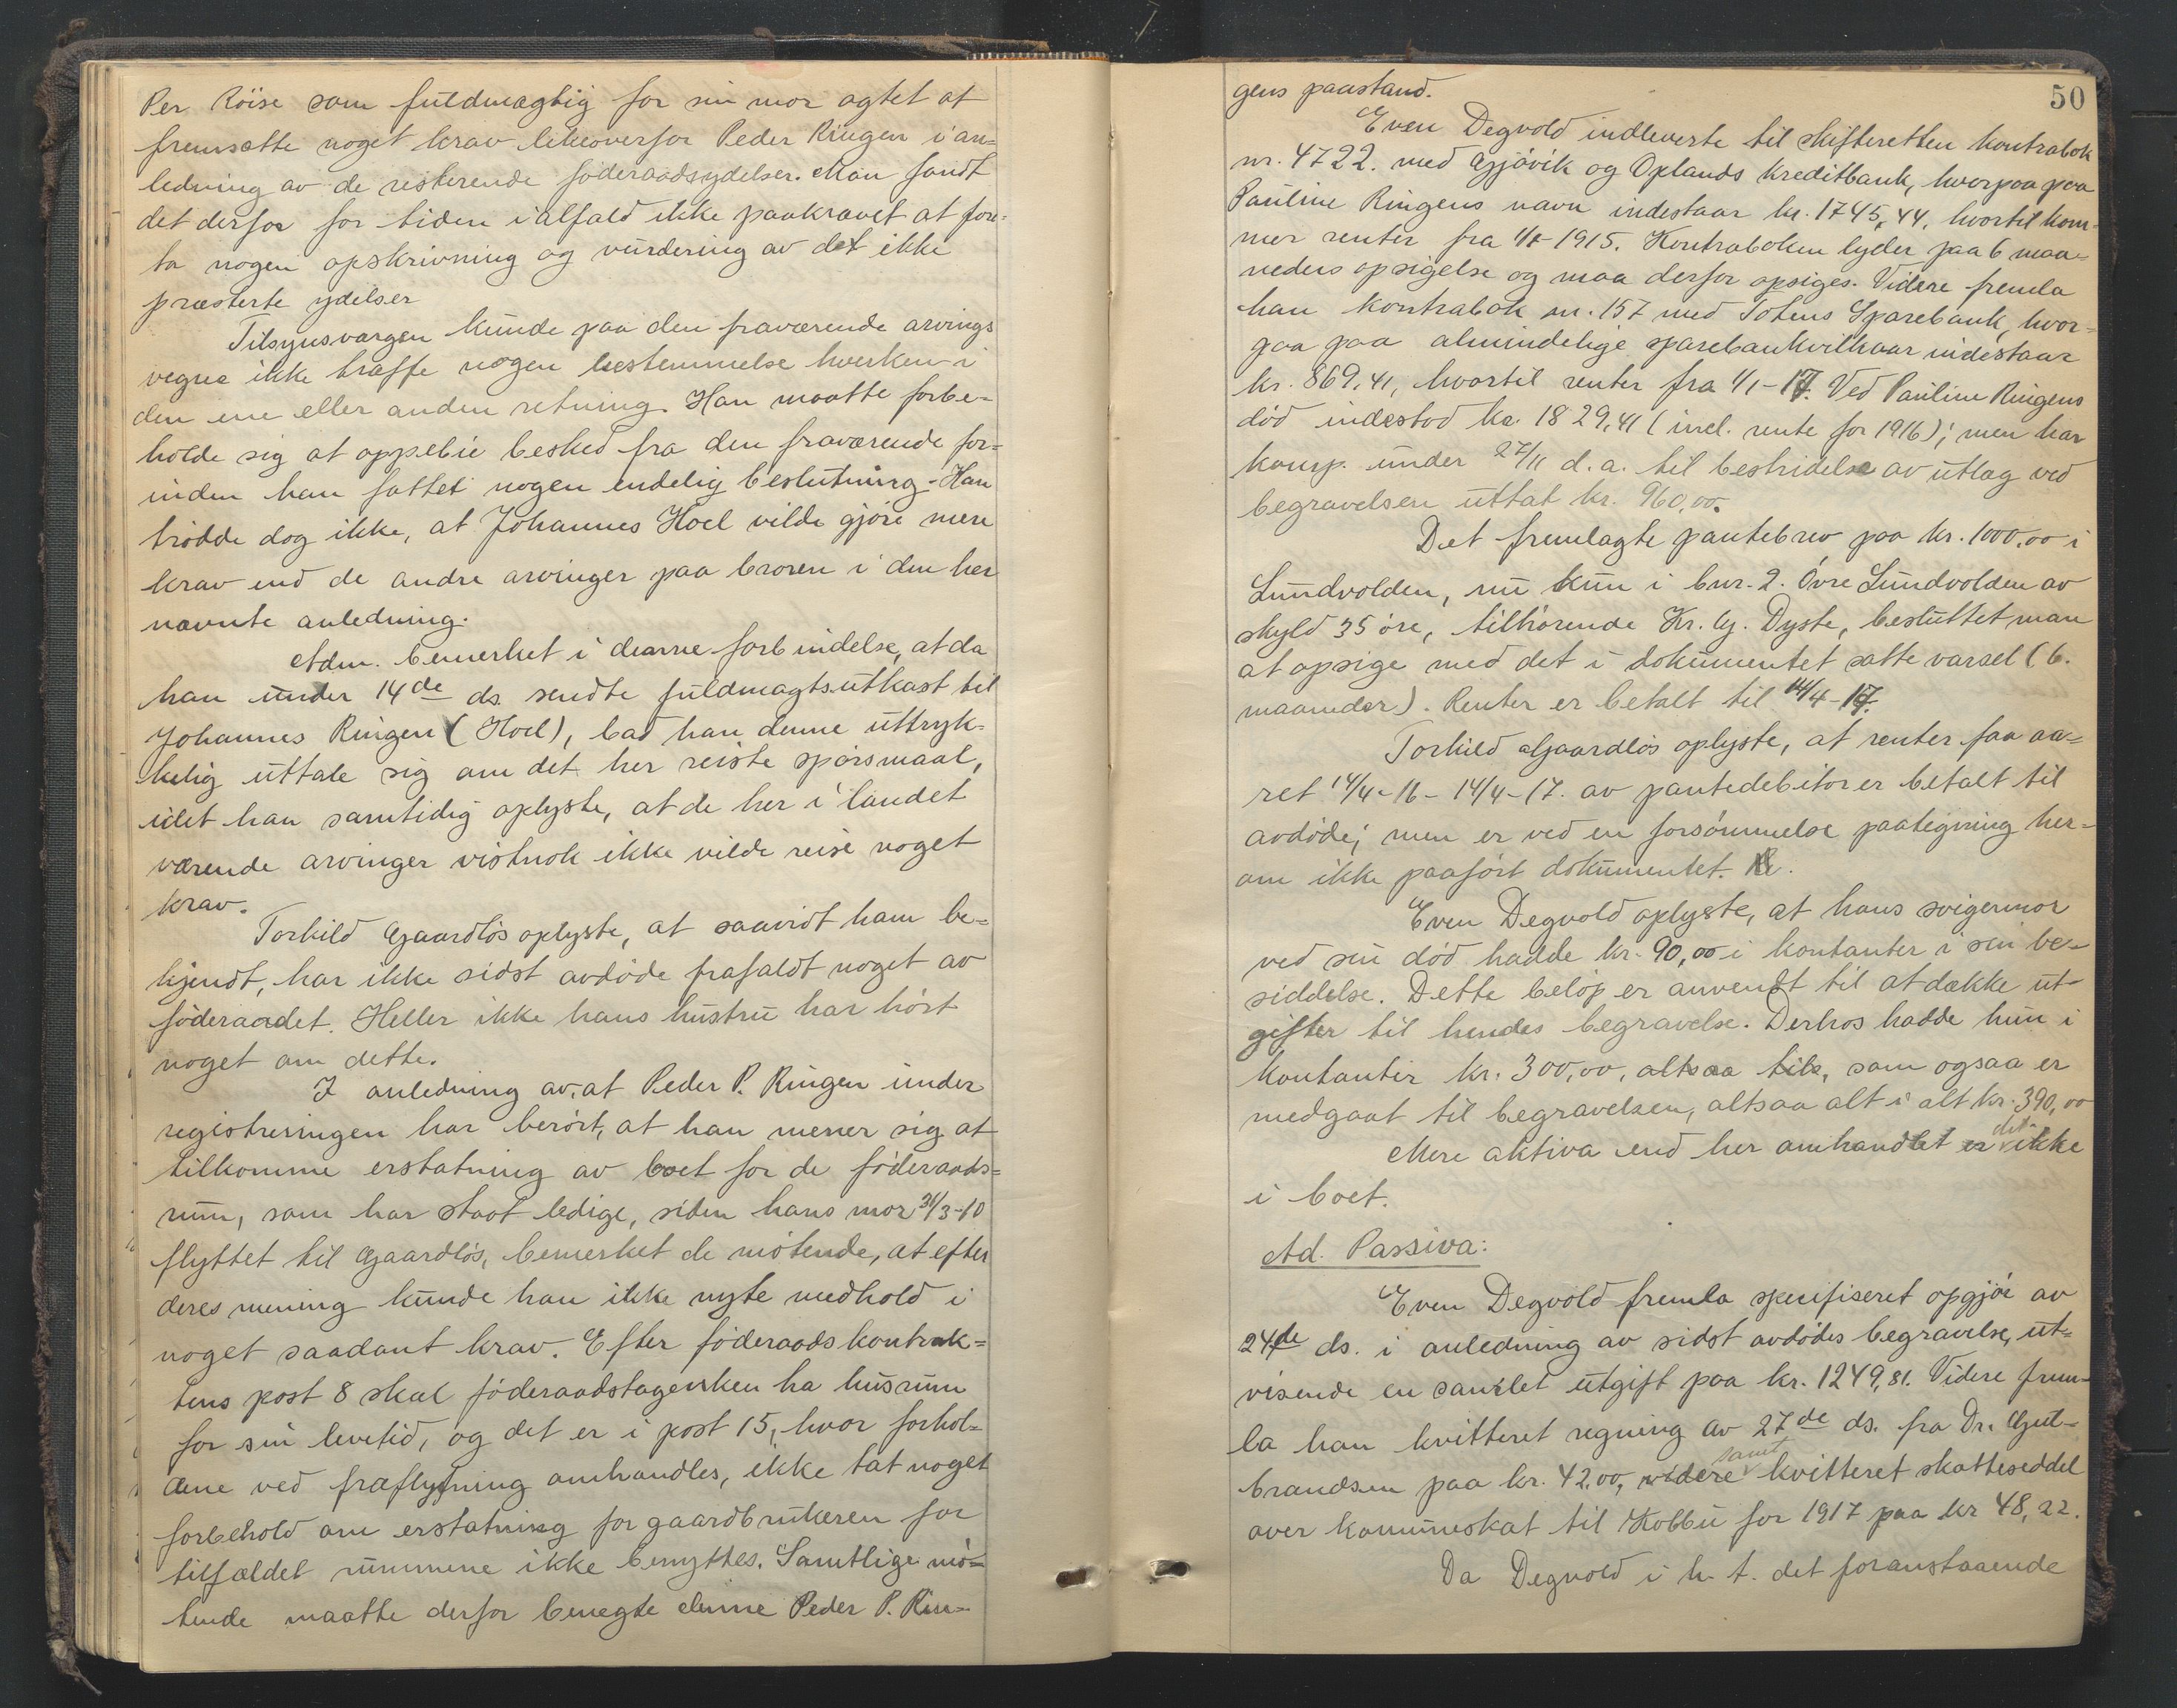 Per Röise som fuldmægtig for sin mor agtet at
fremsætte noget krav likeoverfor Peder Ringen i an-
ledning av de resterende föderaadsydelser. Man fandt
det derfor for tiden ialfald ikke paakrævet at fore-
ta nogen opskrivning og vurdering av det ikke
præsterte ydelser
Tilsynsværgen kunde paa den fraværende arvings
vegne ikke træffe nogen bestemmelse hverken i
den ene eller anden retning. Han maatte forbe-
holde sig at oppebie besked fra den fraværende for-
inden han fattet nogen endelig beslutning. Han
trodde dog ikke, at Johannes Hoel vilde gjöre mere
krav end de andre arvinger paa broren i den her
nævnte anledning.
Adm. bemerket i denne forbindelse, at da
han under 14de ds. sendte fuldmagtsutkast til
Johannes Ringen (Hoel), bad han denne uttryk-
kelig uttale sig om det her reiste spörsmaal,
idet han samtidig oplyste, at de her i landet
værende arvinger vistnok ikke vilde reise noget
krav.
Torhild Gaardlös oplyste, at saavidt ham be-
kjendt, har ikke sidst avdöde frafaldt noget av
föderaadet. Heller ikke hans hustru har hört
noget om dette.
I anledning av, at Peder P. Ringen under
registreringen har berört, at han mener sig at
tilkomme erstatning av boet for de föderaads-
rum, som har staat ledige, siden hans mor 31/3-10
flyttet til Gaardlös, bemerket de mötende, at efter
deres mening kunde han ikke nyte medhold i
noget saadant krav. Efter föderaadskontrak-
tens post 8 skal föderaadstagersken ha husrum
for sin levetid, og det er i post 15, hvor forhol-
dene ved fraflytning omhandles, ikke tat noget
forbehold om erstatning for gaardbrukeren for
tilfældet rummene ikke benyttes. Samtlige mö-
tende maatte derfor benegte denne Peder P. Rin-
50
gens paastand.
Even Degvold indleverte til skifteretten kontrabok
nr. 4722. med Gjövik og Oplands Kreditbank, hvorpaa paa
Pauline Ringens navn indestaar kr. 1745,44, hvortil kom-
mer renter fra 1915. Kontraboken lyder paa 6 maa-
neders opsigelse og maa derfor opsiges. Videre fremla
han kontrabok nr. 157 med Totens Sparebank, hvor-
paa paa almindelige sparebankvilkaar indestaar
kr. 869,41, hvortil renter fra 1/1-17. Ved Pauline Ringens
död indestod kr. 1829,41 (incl. rente for 1916); men har
komp. under 27/11 d.a. til bestridelse av utlæg ved
begravelsen uttat kr. 960,00.
Det fremlagte pantebrev paa kr. 1000,00 i
Lundvolden, nu kun i bnr. 2. Övre Lundvolden av
skyld 35 öre, tilhörende Kr. G. Dyste, besluttet man
at opsige med det i dokumentet satte varsel (6.
maaneder). Renter er betalt til 14/4-17.
Torhild Gaardlös oplyste, at renter for aa-
ret 14/4-16-14/4-17. av pantedebitor er betalt til
avdöde; men er ved en forsömmelse paategning her-
om ikke paafört dokumentet.
Even Degvold oplyste, at hans svigermor
ved sin död hadde kr. 90,00 i kontanter i sin be-
siddelse. Dette belöp er anvendt til at dække ut-
gifter til hendes begravelse. Derhos hadde hun i
kontanter kr. 300,00, altsaa tils, som ogsaa er
medgaat til begravelsen, altsaa alt i alt kr. 390,00
Mere aktiva end her omhandlet er det ikke
i boet.
Ad. Passiva:
Even Degvold fremla spesifiseret opgjör av
24de ds. i anledning av sidst avdödes begravelse, ut-
visende en samlet utgift paa kr. 1249,81. Videre frem-
la han kvitteret regning av 27de ds. fra Dr. Gul-
brandsen paa kr. 42,00, videre samt kvitteret skatteseddel
over kommuneskat til Kolbu for 1917 paa kr 48,22.
Da Degvold i h. t. det foranstaaende